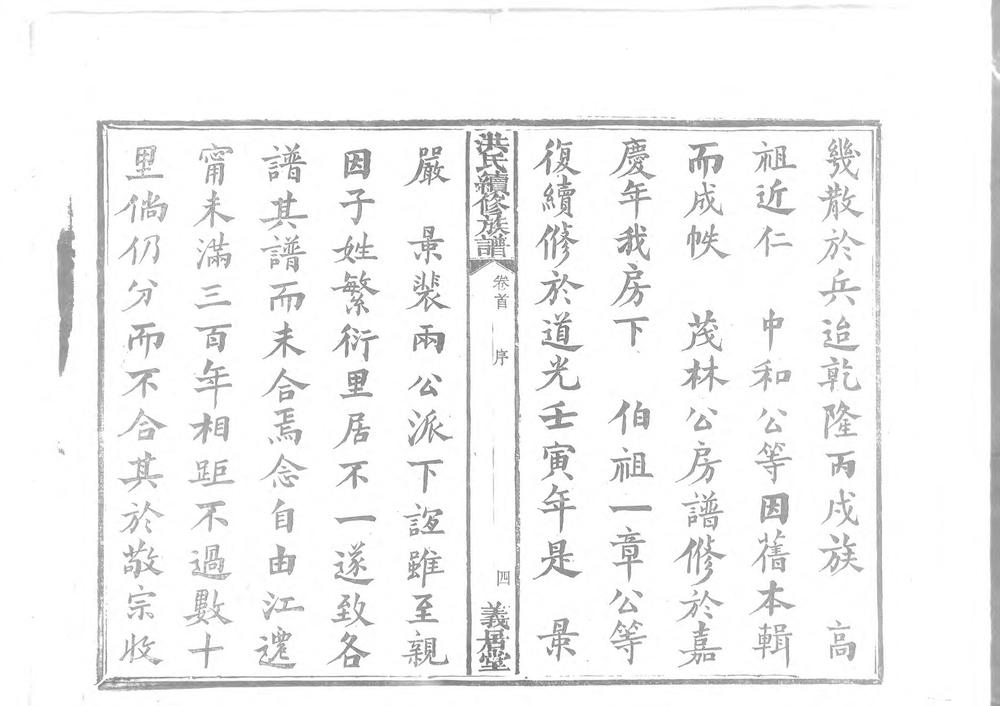 幾散於兵迨乾隆丙戍族　高
祖近仁　中和公等因舊本輯
而成帙　茂林公房譜修於嘉
慶年我房下　伯祖一章公等
復續修於道光壬寅年是　景
洪氏續修族譜
卷首　序
四
義居堂
嚴　景裴兩公派下誼雖至親
因子姓繁衍里居不一遂致各
譜其譜而未合焉念自由江遷
甯未滿三百年相距不過數十
里倘仍分而不合其於敬宗收